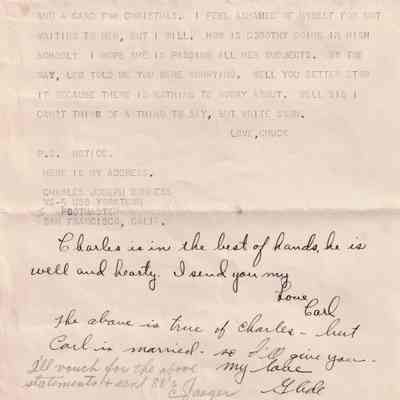 AND A CARD FOR CHRISTMAS. I FEEL ASHAMED OF MYSELF FOR NOT
WRITING TO HER, BUT I WILL. HOW IS DOROTHY DOING IN HIGH
SCHOOL? I HOPE SHE IS PASSING ALL HER SUBJECTS. BY THE
WAY, LEO TOLD ME YOU WERE WORRYING. WELL YOU BETTER STOP
IT BECAUSE THERE IS NOTHING TO WORRY ABOUT. WELL SIS I
CAN'T THINK OF NOTHING TO SAY, BUT WRITE SOON.
LOVE, CHUCK
P.S. NOTICE.
HERE IS MY ADDRESS.
CHARLES JOSEPH
USS YORKTOWN
POSTMASTER
SAN FRANCISCO, CALIF.
Charles is in the best of hands, he is
well and hearty. I send you my
Love
Carl
The above is true of Charles - but
Carl is married - so I'll give you -
my love
Glide
I'll vouch for the above
statements & send 88's
C. Jaeger